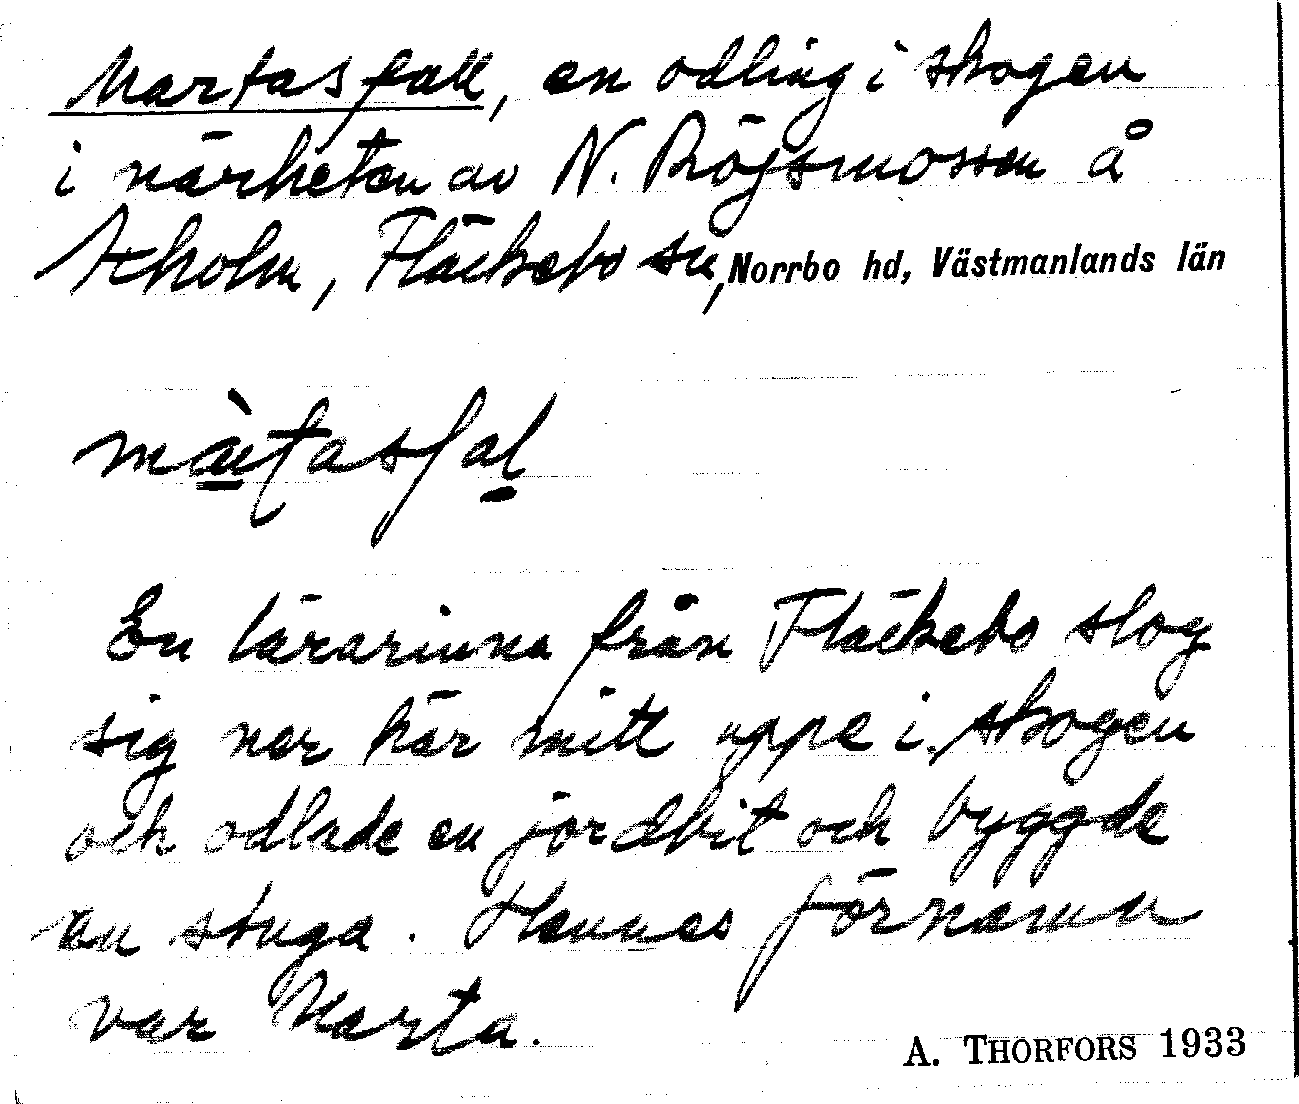 Martasfall, en odling i skogen
i närheten av N. Röjsmossen å
Axholm, Fläckebo sn, Norrbo hd, Västmanlands län
màrtasfal
En lärarinna från Fläckebo slog
sig ner här mitt uppe i skogen
och odlade en jordbit och byggde
en stuga. Hennes förnamn
var Marta.
A. THORFORS 1933